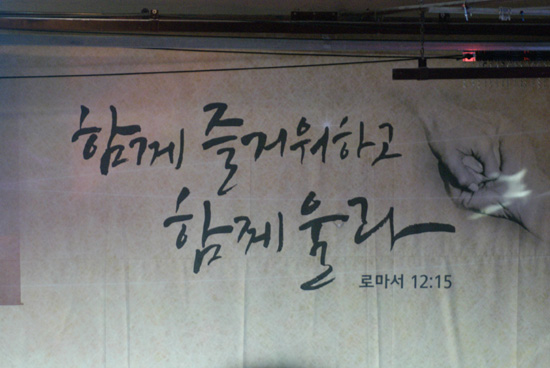 함께 즐거워하고
함께 울라
로마서 12:15